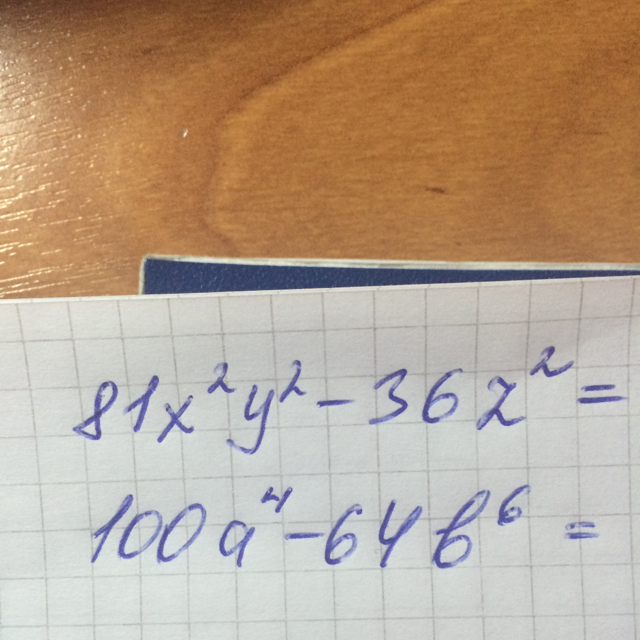 81x²y² - 36z² =
100a⁴ - 64b⁶ =